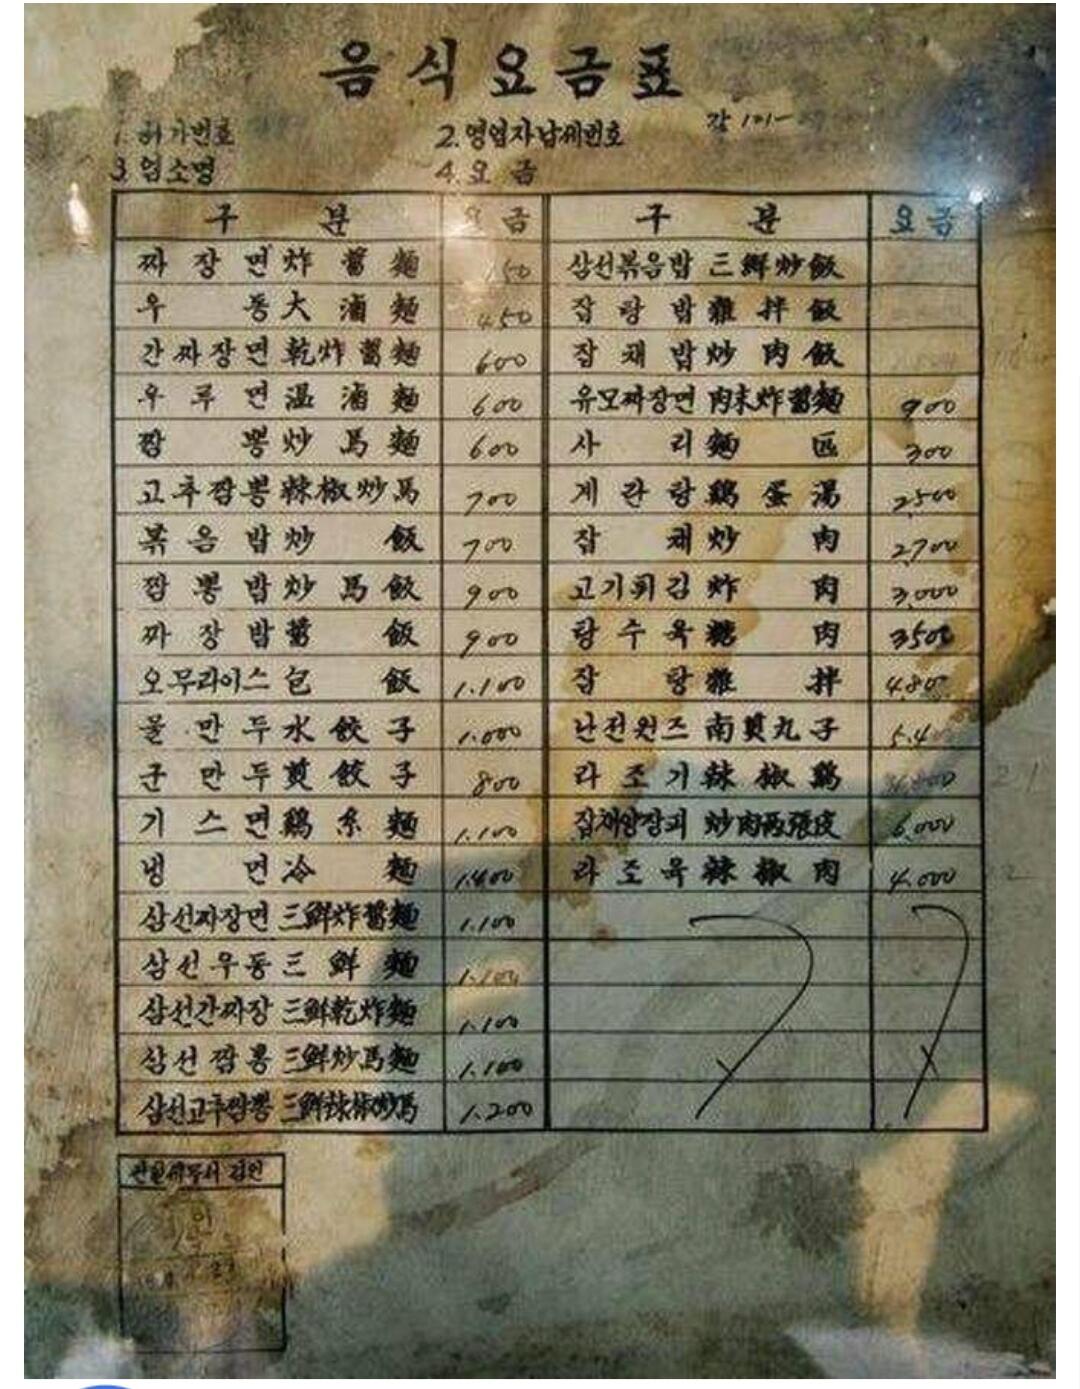 음식요금표
1. 허가번호 2. 영업자납세번호 갑 101-
3. 업소명 4. 요금
구분 요금 구분 요금
짜장면 炸醬麵 50 삼선볶음밥 三鮮炒飯
우동 大滷麵 450 잡탕밥 雜拌飯
간짜장면 乾炸醬麵 600 잡채밥 炒肉飯
우루면 温滷麵 600 유모짜장면 肉末炸醬麵 900
짬뽕 炒馬麵 600 사리 麵 300
고추짬뽕 辣椒炒馬 700 계란탕 鷄蛋湯 2,500
볶음밥 炒飯 700 잡채 炒肉 2,700
짬뽕밥 炒馬飯 900 고기튀김 炸肉 3,000
짜장밥 醬飯 900 탕수육 糖肉 3500
오무라이스 包飯 1.100 잡탕 雜拌 4.800
물만두 水餃子 1.000 난전완즈 南煎丸子 5.4
군만두 煎餃子 800 라조기 辣椒鷄
기스면 鷄糸麵 1.100 잡채양장피 炒肉両張皮 6,000
냉면 冷麵 1.400 라조육 辣椒肉 4.000
삼선짜장면 三鮮炸醬麵 1.100
삼선우동 三鮮麵 1.100
삼선간짜장 三鮮乾炸麵 1.100
삼선짬뽕 三鮮炒馬麵 1.100
삼선고추짬뽕 三鮮辣椒炒馬 1.200
관할세무서 검인